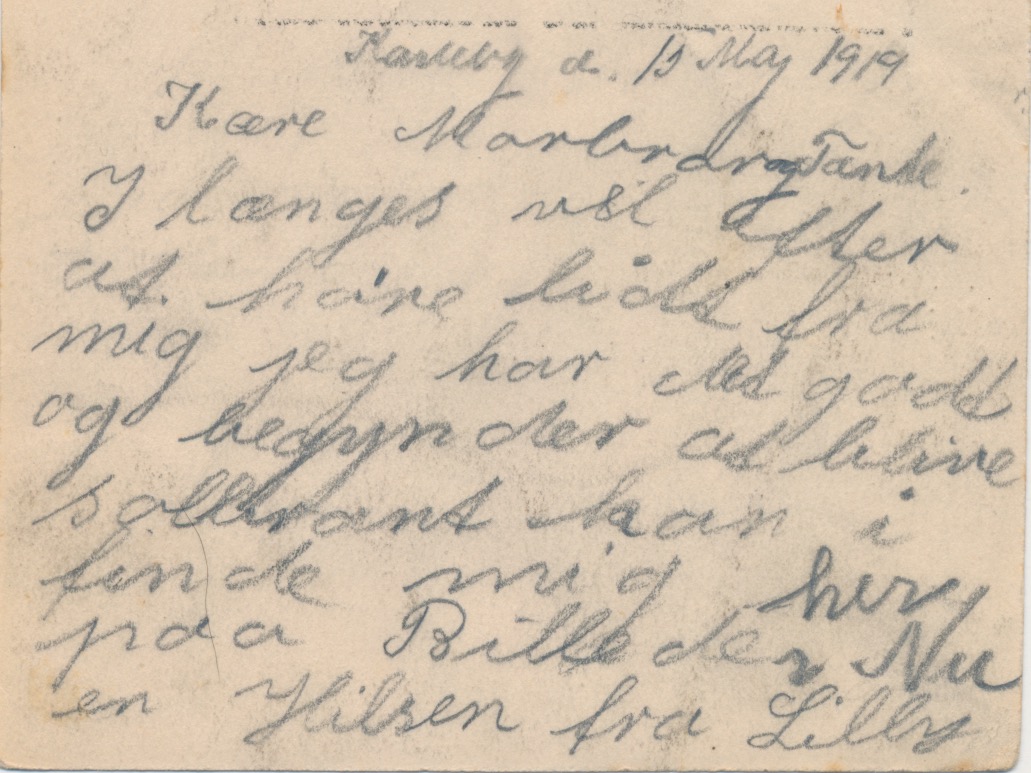 Karleby d. 15 Maj 1919
Kære Morbror og Tante.
I længes vel efter
at høre lidt fra
mig jeg har det godt
og begynder at blive
solbrant kan i
finde mig her
paa Billedet Nu
en Hilsen fra Lilly